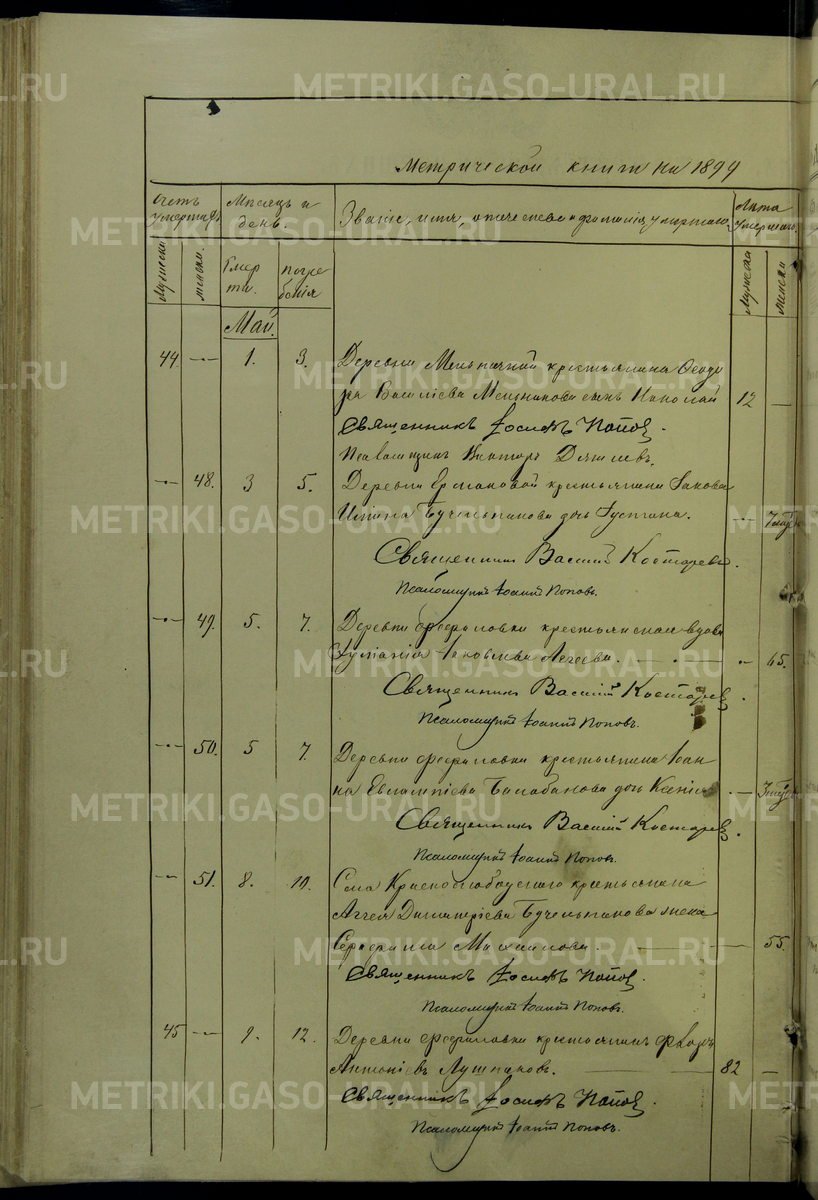 METRIKI.GASO-URAL.RU
Метрической книги на 1899
Счетъ умершихъ.
Мѣсяцъ и день.
Званіе, имя, отчество и фамилія умершаго.
Лѣта умершаго.
Мужеска
женска.
Смерти.
погребенія
Мужеска
женска
Май.
44 — 1. 3. Деревни Мельничной крестьянина Ѳеодо
ра Василіева Мельникова сынъ Николай 12 —
Священникъ Іосифъ Поповъ.
Псаломщикъ Викторъ
— 48. 3 5. Деревни Ермаковой крестьянина Іакова
Бучельникова дочь Іустина. —
Священникъ Василій Костаревъ.
Псаломщикъ Іоаннъ Поповъ.
— 49. 5. 7. Деревни крестьянская вдова
Іуліанія Іаковлева Агеева. — 65.
Священникъ Василій Костаревъ.
Псаломщикъ Іоаннъ Поповъ.
— 50. 5 7. Деревни крестьянина Іоан
на Евлампіева Балабанова дочь Ксенія —
Священникъ Василій Костаревъ.
Псаломщикъ Іоаннъ Поповъ.
— 51. 8. 10. Села Краснослободскаго крестьянина
Аггея Димитріева Бучельникова жена
Серафима Михаилова. — 55.
Священникъ Іосифъ Поповъ.
Псаломщикъ Іоаннъ Поповъ.
45 — 9. 12. Деревни крестьянинъ
Антоніевъ Лушниковъ. 82 —
Священникъ Іосифъ Поповъ.
Псаломщикъ Іоаннъ Поповъ.